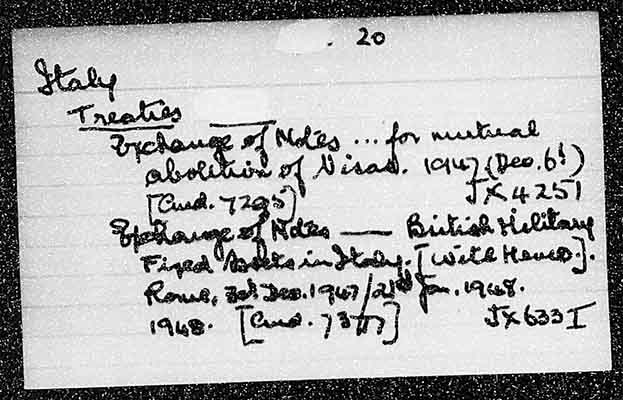 20
Italy
Treaties
Exchange of Notes ... for mutual
abolition of Visas. 1947 (Dec. 6)
[Cmd. 7295] JX 4251
Exchange of Notes — British Military
Fixed Assets in Italy. [With Memo.].
Rome, Dec. 1947/21st Jan. 1948.
1948. [Cmd. ] JX 633 I